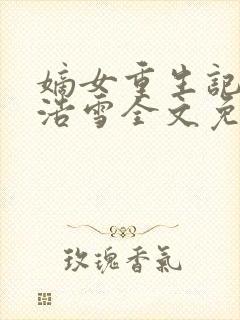 嫡女重生記
浩雪全文免
玫瑰香氣